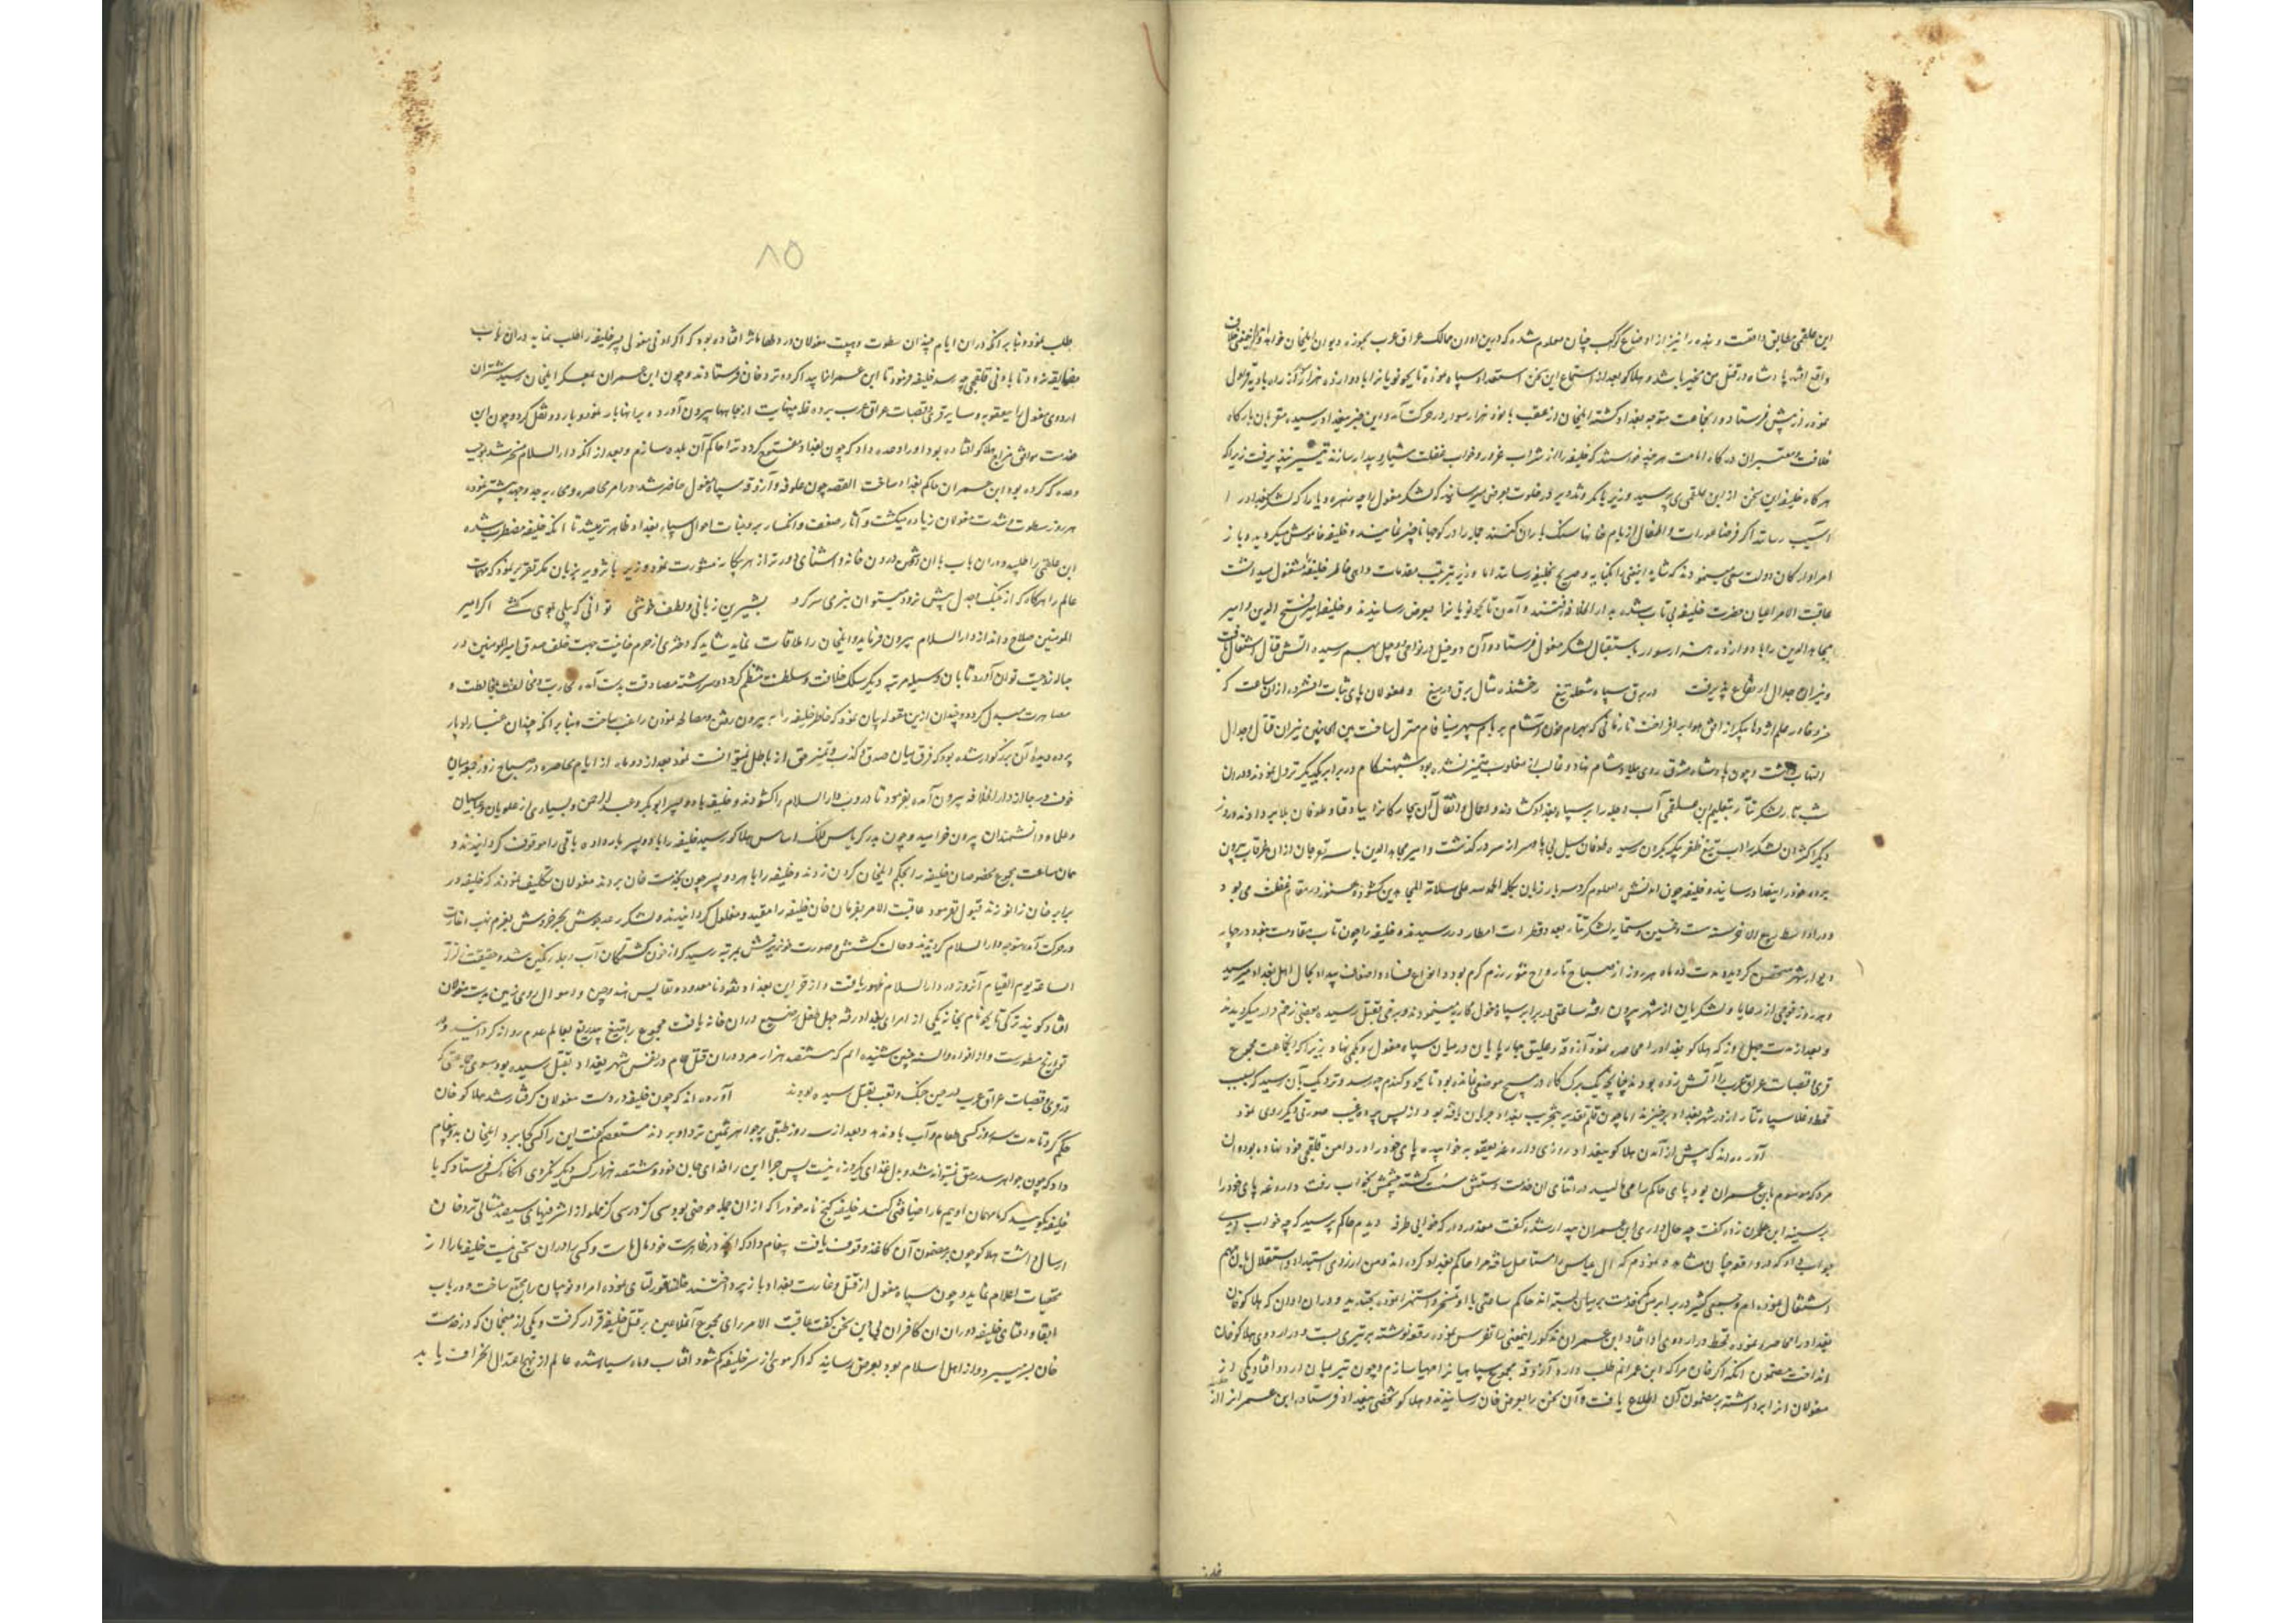 این علقمی مطابق واقعست و بنده را نیز از اوضاع کواکب چنان معلوم شده که درین اوان ممالک عراق عرب بحوزه دیوان ایلخان خواهد
واقع شد پادشاه در قتل من مخیر باشد و هلاکو بعد از استماع این سخن استعداد سپاه نموده تایجو نویانرا با دوازده هزار از راه
خود از پیش فرستاد و آن جماعت متوجه بغداد گشته ایلخان از عقب با نود هزار سوار در حرکت آمد و این خبر ببغداد رسیده مقربان بارگاه
خلافت و معتبران درگاه امامت هر چند خواستند که خلیفه را از شراب غرور و خواب غفلت هشیار و بیدار سازند تیسیر نپذیرفت زیرا که
هرگاه خلیفه این سخن از ابن علقمی می پرسید وزیر در خلوت بعرض میرسانید که لشکر مغول را چه زهره و یارا که لشکر بغداد را
آسیب رسانند اگر فرضا عورات و اطفال از بام خانها سنگ باران کنند همه را در کوچها ناچیز نمایند و خلیفه خاموش میگردید و باز
امرا و ارکان دولت سعی مینمودند که شاید این معنی را بکنایه و صریح بخلیفه رسانند اما وزیر بترتیب مقدمات واهی خاطر خلیفه را مشغول میداشت
عاقبت الامر اعیان حضرت خلیفه بی تاب شده بدار الخلافه رفتند و آمدن تایجو نویانرا بعرض رسانیدند و خلیفه امیر فتح الدین و امیر
مجاهد الدین را با دوازده هزار سوار باستقبال لشکر مغول فرستاد و آن دو خیل در نواحی دجیل بهم رسیده آتش قتال اشتعال یافت
و نیران جدال ارتفاع پذیرفت در برق سپاه شعله تیغ رخشنده مثال برق در میغ و مغولان پای ثبات افشرده از آن ساعت که
خسرو خاور علم اژدها پیکر از افق برافراخت تا زمانی که بهرام خون آشام بر بام سپهر مینا فام منزل ساخت بین الجانبین نیران قتال و جدال
التهاب داشت و چون پادشاه مشرق روی ببلاد شام نهاد و غالب از مغلوب متمیز نشده بود شبهنگام در برابر یکدیگر نزول نمودند و در آن
شب تار لشکر تتار بتعلیم ابن علقمی آب دجله را بر سپاه بغداد گشادند و احمال و اثقال آن بیچارگانرا بباد فنا و طوفان بلا بر دادند و روز
دیگر اکثر آن لشکر را تیغ ظفر پیکر بگردن رسیده طوفان سیل بی پا همه را از سر درگذشت و امیر مجاهد الدین با سه نفر جان از آن غرقاب بیرون
برده خود را ببغداد رسانید و خلیفه چون آمدنش را معلوم کرد سه بار زبان بکلمه الحمد لله علی سلامة المجاهدین گشوده هنوز در مقام غفلت می بود
و در اواسط ربیع الاخر سنه ست و خمسین و ستمایه لشکر تتار بعدد قطرات امطار در رسیدند خلیفه را چون تاب مقاومت نبود در چهار
دیوار شهر متحصن گردیده مدت دو ماه هر روز از صباح تا رواح تنور رزم گرم بود و انواع فساد و اصناف بیداد بحال اهل بغداد میرسید
و هر روز فوجی از رعایا و لشکریان از شهر بیرون رفته ساعتی در برابر سپاه مغول محاربه مینمودند و برخی بقتل رسیده بعضی زخم دار میگردیدند
و بعد از مدت چهل روز که هلاکو بغداد را محاصره نمود آزوقه و علیق چهارپایان در میان سپاه مغول روی بکمی نهاد زیرا که آن جماعت مجموع
قری و قصبات عراق عرب را آتش زده بودند چنانچه یک برگ کاه در هیچ موضعی نمانده بود تا بجو و گندم چه رسد و نزدیک بآن رسید که بسبب
قحط و غلا سپاه تتار از در شهر بغداد برخیزند اما چون قلم تقدیر بتخریب بغداد جریان یافته بود از پس پرده غیب صورتی دیگر روی نمود
آورده اند که پیش از آمدن هلاکو ببغداد روزی داروغه یعقوبه خوابیده پای خود را در دامن قلقچی خود نهاده بود و آن
مرد که موسوم بابن عمران بود پای حاکم را می مالید در اثنای آن خدمت دستش سست گشته چشمش بخواب رفت داروغه پای خود را
بر سینه ابن عمران زده گفت چه حال داری ابن عمران بیدار شده گفت معذور دار که خوابی طرفه دیدم حاکم پرسید که چه خواب دیدی
جواب داد که در واقعه چنان مشاهده نمودم که آل عباس مستاصل یافته مرا حاکم بغداد کرده اند و من از روی استبداد و استقلال بآن مهم
اشتغال نموده ام و جمعی کثیر در برابر من کمر خدمت بر میان بسته اند حاکم ساعتی با او تمسخر و استهزا نموده بخندید و در آن اوان که هلاکو خان
بغداد را محاصره نموده قحط در اردوی او افتاد ابن عمران مذکور این معنی را تفرس نموده رقعه نوشته بر تیری بست و در اردوی هلاکو خان
انداخت مضمون آنکه اگر خان مرا که ابن عمرانم طلب دارد آزوقه مجموع سپاهیانرا مهیا سازم و چون تیر بمیان اردو افتاد یکی از
مغولان آنرا برداشته بر مضمون آن اطلاع یافت و آن سخن را بعرض خان رسانیدند و هلاکو شخصی ببغداد فرستاده ابن عمران را از
خلیفه
۸۵
طلب نمود و بنا بر آنکه در آن ایام چندان سطوت و هیبت مغولان در دلها تاثیر افتاده بود که اگر ادنی مغولی پسر خلیفه را طلب نماید در آن باب
مضایقه نرود تا بادنی قلقچی چه رسد خلیفه فرمود تا ابن عمران را پیدا کرده نزد خان فرستادند و چون ابن عمران بمعسکر ایلخان رسید شتران
اردوی مغول را بیعقوبه و سایر قری و قصبات عراق عرب برده غله بی نهایت از چاهها بیرون آورده بر آنها بار نمود و باردو نقل کرد و چون این
خدمت موافق مزاج هلاکو افتاده بود او را وعده داد که چون بغداد مفتوح گردد ترا حاکم آن بلده سازم و بعد از آنکه دار السلام مسخر شد بموجب
وعده که کرده بود ابن عمران حاکم بغداد ساخت القصه چون علوفه و آزوقه سپاه مغول حاضر شد در امر محاصره و محاربه جد و جهد بیشتر نموده
هر روز سطوت و شدت مغولان زیاده میگشت و آثار ضعف و انکسار بر وجنات احوال سپاه بغداد ظاهر تر میشد تا آنکه خلیفه مضطرب شده
ابن علقمی را طلبید و در آن باب با آن دشمن درون خانه و آشنای دورتر از هر بیگانه مشورت نمود وزیر پر تزویر بزبان مکر تقریر نمود که مهمات
عالم را هرگاه که از جنگ و جدل پیش نرود میتوان بنرمی سر کرد بشیرین زبانی و لطف خوشی توانی که پیلی بموی کشی اگر امیر
المومنین صلاح داند از دار السلام بیرون فرماید و ایلخان را ملاقات نماید شاید که دختری از حرم خانیت جهت خلف صدق امیر المومنین در
حباله زوجیت توان آورد تا بآن وسیله مرتبه دیگر سلک خلافت و سلطنت منتظم گردد و سررشته مصادقت بدست آمده محاربت و مخالفت بمخالطت و
مصاهرت مبدل گردد و چندان ازین مقوله بیان نمود که خاطر خلیفه را به بیرون رفتن و مصالحه نمودن راغب ساخت و بنا بر آنکه چندان غبار ادبار
پرده دیده آن بزرگوار شده بود که فرق میان صدق و کذب و تمیز حق از باطل نمیتوانست نمود بعد از دو ماه از ایام محاصره در صباح روز چهارشنبه میان
خوف و رجا از دار الخلافه بیرون آمده بفرمود تا دروب دار السلام را گشودند و خلیفه با دو پسر ابوبکر و عبد الرحمن و بسیاری از علویان و عباسیان
و علما و دانشمندان بیرون خرامید و چون بدر کریاس فلک اساس هلاکو رسید خلیفه را با دو پسر بار داده باقی را موقوف گردانیدند و
همان ساعت مجموع مخصوصان خلیفه را بحکم ایلخان گردن زدند و خلیفه را با هر دو پسر چون بخدمت خان بردند مغولان تکلیف نمودند که خلیفه در
برابر خان زانو زند قبول نفرمود عاقبت الامر بفرمان خان خلیفه را مقید و مغلول گردانیدند و لشکر رعد جوش بحر خروش بعزم نهب و غارت
در حرکت آمده متوجه دار السلام گردیدند و حالت کشش و صورت خونریزش بمرتبه رسید که از خون کشتگان آب دجله رنگین شد و حقیقت زلزلة
الساعة یوم القیام آنروز در دار السلام ظهور یافت و از خزاین بغداد نقود نامعدود و نفایس هند و چین و اموال روی زمین بدست مغولان
افتاد گویند ترکی تایجو نام بخانه یکی از امرای بغداد رفته چهل طفل رضیع در آن خانه یافت مجموع را بتیغ بیدریغ بعالم عدم روانه گردانید و در
تواریخ مسطورست و از افواه و السنه چنین شنیده ایم که ششصد هزار مرد در آن قتل عام در نفس شهر بغداد بقتل رسیده بود سوی جماعتی که
در قری و قصبات عراق عرب در حین جنگ و تعب بقتل رسیده بودند آورده اند که چون خلیفه در دست مغولان گرفتار شد هلاکو خان
حکم کرد تا مدت سه روز کسی طعام و آب باو نداد و بعد از سه روز طبقی پر جواهر ثمین نزد او بردند مستعصم گفت این را کسی بجا برد ایلخان باو پیغام
داد که چون جواهر سد رمق نمیتواند شد و بدل غذای یکروزه نیست پس چرا این را فدای جان خود و ششصد هزار کس دیگر نکردی آنگاه کس فرستاد که با
خلیفه بگوئید که ما مهمان اوییم ما را ضیافتی کند خلیفه گنج نامه خود را که از آن جمله حوضی بود سی گز در سی گز مملو از اشرفیهای سیصد مثقالی نزد خان
ارسال داشت هلاکو چون بر مضمون آن کاغذ وقوف یافت پیغام داد که آنچه در ظاهرست خود مال ماست و کسی را در آن سخنی نیست خلیفه ما را از
مخفیات اعلام نماید و چون سپاه مغول از قتل و غارت بغداد باز پرداختند هلاکو قورلتای نموده امرا و نوینان را جمع ساخت و در باب
ابقا و افنای خلیفه دوران آن کافران بی دین سخن گفت عاقبت الامر رای مجموع آن ملاعین بر قتل خلیفه قرار گرفت و یکی از منجمان که در خدمت
خان بسر میبرد و از اهل اسلام بود بعرض رسانید که اگر مویی از سر خلیفه کم شود آفتاب و ماه سیاه شده عالم از نهج اعتدال انحراف یابد